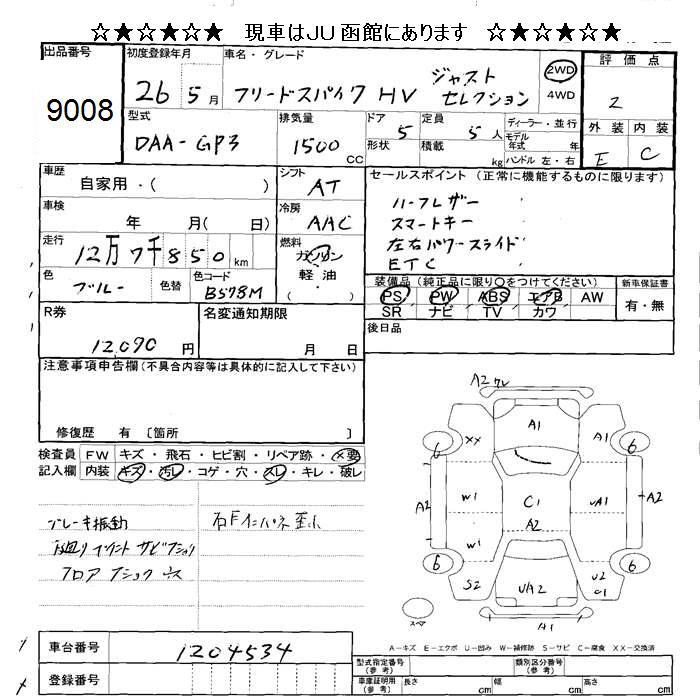 ☆★☆★☆★ 現車はJU函館にあります ☆★☆★☆★
出品番号 9008
初度登録年月 26 5月
車名・グレード フリードスパイク HV ジャスト セレクション
2WD 4WD
評価点 2
型式 DAA-GP3
排気量 1500 CC
ドア 5 形状
定員 5人 積載 kg
ディーラー・並行
モデル年式 年式
ハンドル 左・右
外装 E
内装 C
車歴 自家用・( )
シフト AT
セールスポイント(正常に機能するものに限ります)
ハーフレザー
スマートキー
左右パワースライド
ETC
車検 年 月( 日)
冷房 AAC
走行 12万7千850km
燃料 ガソリン 軽油・( )
色 ブルー 色替
色コード B578M
装備品(純正品に限り○をつけてください)
PS PW ABS エアB AW
SR ナビ TV カワ
新車保証書 有・無
R券 12,090円
名変通知期限 月 日
後日品
注意事項申告欄(不具合内容等は具体的に記入して下さい)
修復歴 有〔箇所 〕
検査員記入欄
FW キズ・飛石・ヒビ割・リペア跡・×要
内装 キズ・汚レ・コゲ・穴・スレ・キレ・破レ
ブレーキ振動
サビ
フロア
A2
A1
XX
A1
6
6
A2
W1
C1
A2
UA1
A2
W1
6
6
S2
UA2
U2
C1
A1
スペア
A-キズ E-エクボ U-凹み W-補修跡 S-サビ C-腐食 XX-交換済
車台番号 1204534
登録番号
型式指定番号(参考)
類別区分番号(参考)
車庫証明用(参考) 長さ cm 幅 cm 高さ cm